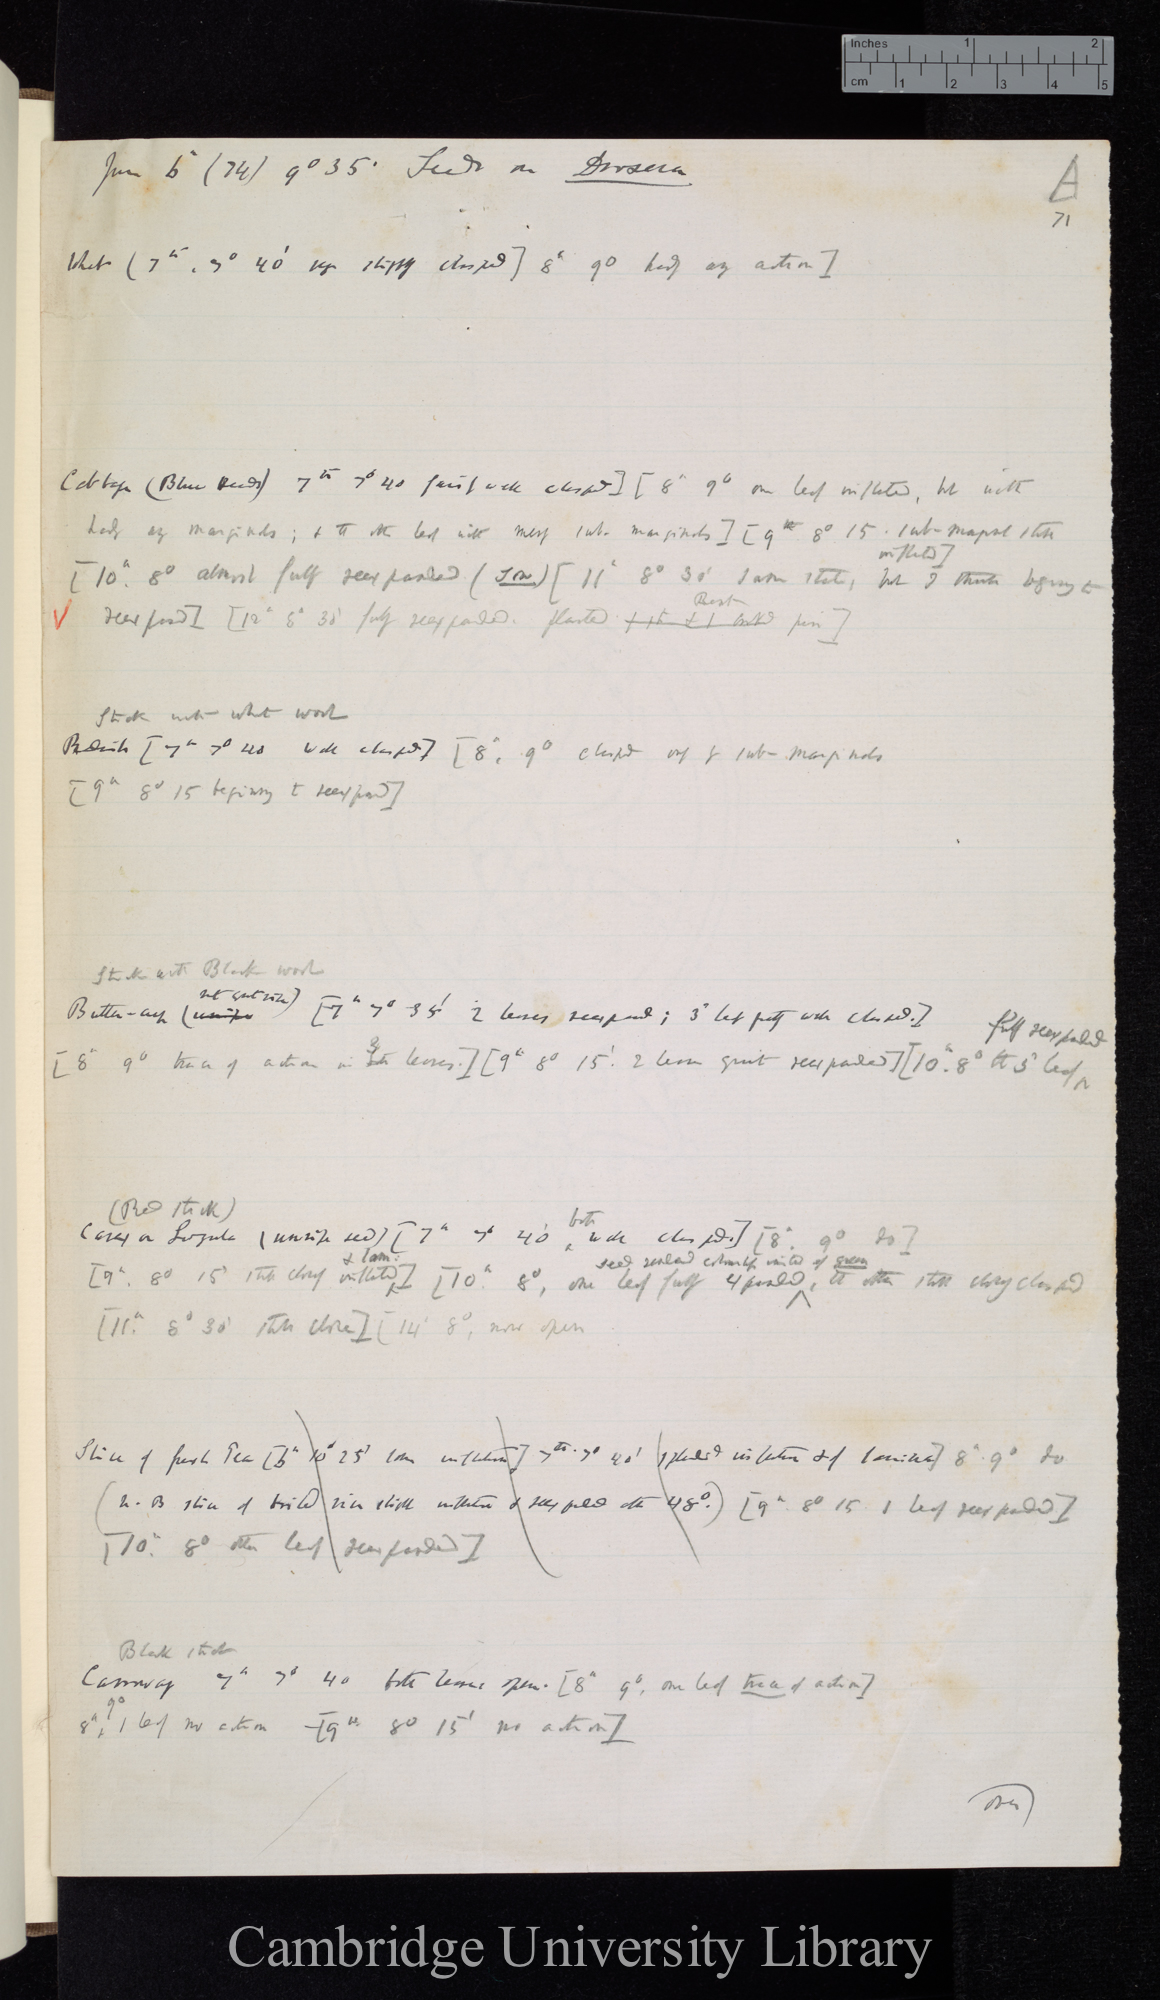 Inches 1 2
cm 1 2 3 4 5
June 6 (74) 9° 35' Seeds on Drosera
A
71
Wheat (7th, 7° 40' very slightly clasped] 8th 9° hardly any action]
Cabbage (Blue thread) 7th 7° 40 fairly well clasped] [8th 9° one leaf inflected, but with
hardly any marginals; & the other leaf with many sub-marginals] [9th 8° 15 sub-marginal still
inflected]
[10th. 8° almost fully reexpanded [11th 8° 30' same state, but I think begins to
Best
✓ reexpand] [12th 8° 30' fully reexpanded. planted pin]
Stick with white wool
Radish [7th 7° 40 well clasped] [8th, 9° clasped only by sub-marginals
[9th 8° 15 beginning to reexpand]
Stick with Black wool
not quite ripe)
Butter-cup (unripe [7th 7° 35' 2 leaves reexpand; 3d leaf pretty well closed.]
fully reexpanded
[8th 9° trace of action in 3 leaves.] [9th 8° 15'. 2 leaves quite reexpanded] [10th. 8° the 3d leaf
(Red stick)
both
Carex or Luzula (unripe seed) [7th 7° 40', well clasped.] [8th, 9° do]
& lam:
[9th. 8° 15' still closely inflected] [10th. 8°, one leaf fully expanded, the other still closely clasped
[11th. 8° 30' still close] [14th 8°, now open
Slice of fresh Pea [6th 10° 25' some inflection] 7th. 7° 40' splendid inflection & of lamina] 8th. 9° do
(N.B slice of boiled slight inflection & reexpanded after 48°.) [9th 8° 15 1 leaf reexpanded]
[10th. 8° other leaf reexpanded]
Black stick
Carraway 7th 7° 40 both leaves open. [8th 9°, one leaf trace of action]
8th, 9° 1 leaf no action [9th 8° 15' no action]
over)
Cambridge University Library